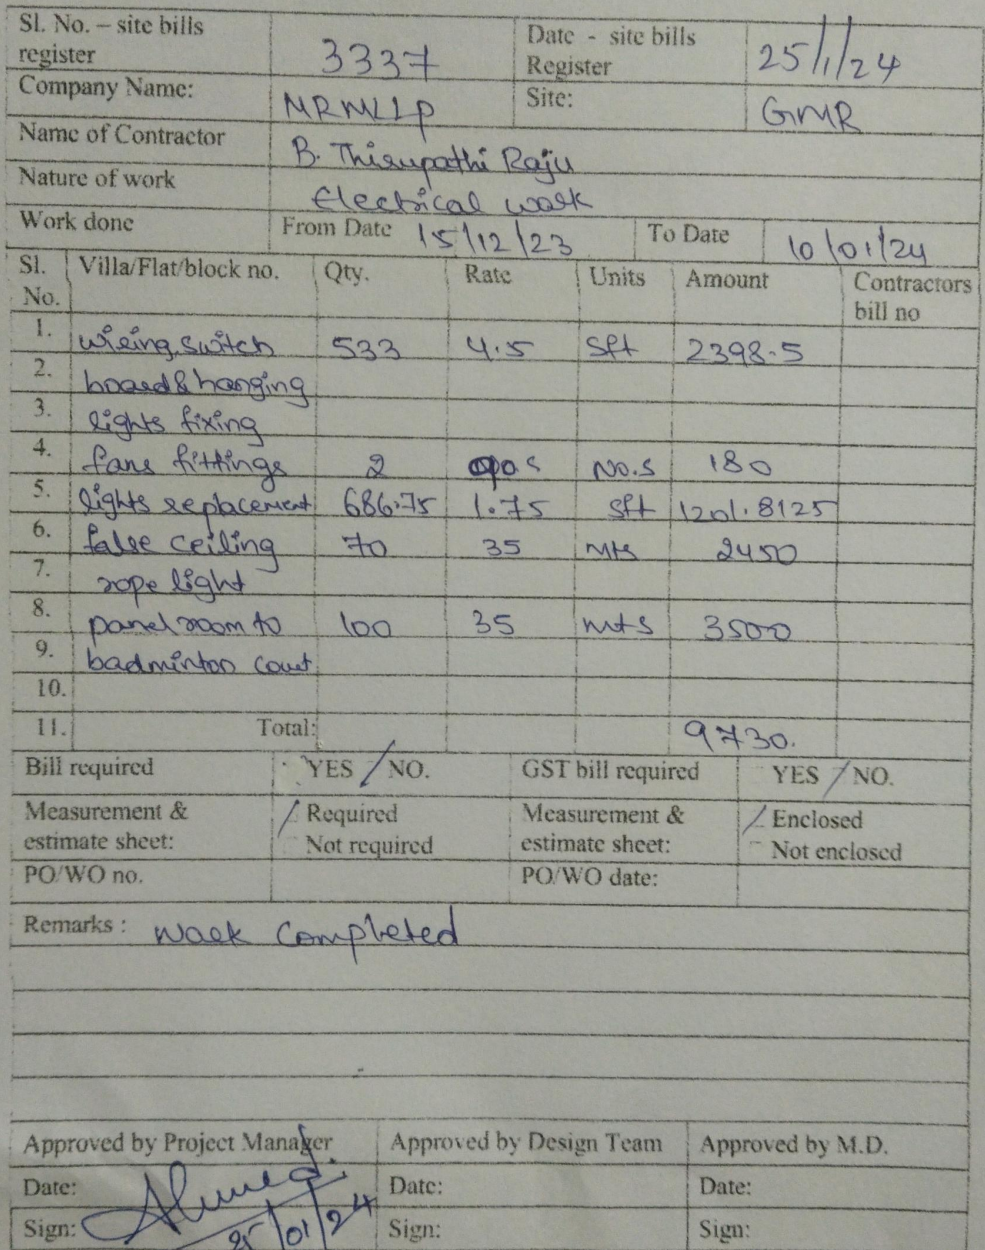 Sl. No. – site bills register 3337 Date - site bills Register 25/1/24
Company Name: MRMLLP Site: GMR
Name of Contractor B. Thirupathi Raju
Nature of work Electrical work
Work done From Date 15/12/23 To Date 10/01/24
Sl. No. Villa/Flat/block no. Qty. Rate Units Amount Contractors bill no
1. wiring, switch 533 4.5 Sft 2398.5
2. board & hanging
3. lights fixing
4. fans fittings 2 No.s 180
5. lights replacement 686.75 1.75 Sft 1201.8125
6. false ceiling 70 35 Mts 2450
7. rope light
8. panel room to 100 35 mts 3500
9. badminton court
10.
11. Total: 9730.
Bill required YES / NO. GST bill required YES / NO.
Measurement & estimate sheet: Required Not required Measurement & estimate sheet: Enclosed Not enclosed
PO/WO no. PO/WO date:
Remarks : work Completed
Approved by Project Manager Approved by Design Team Approved by M.D.
Date: Date: Date:
Sign: 25/01/24 Sign: Sign: